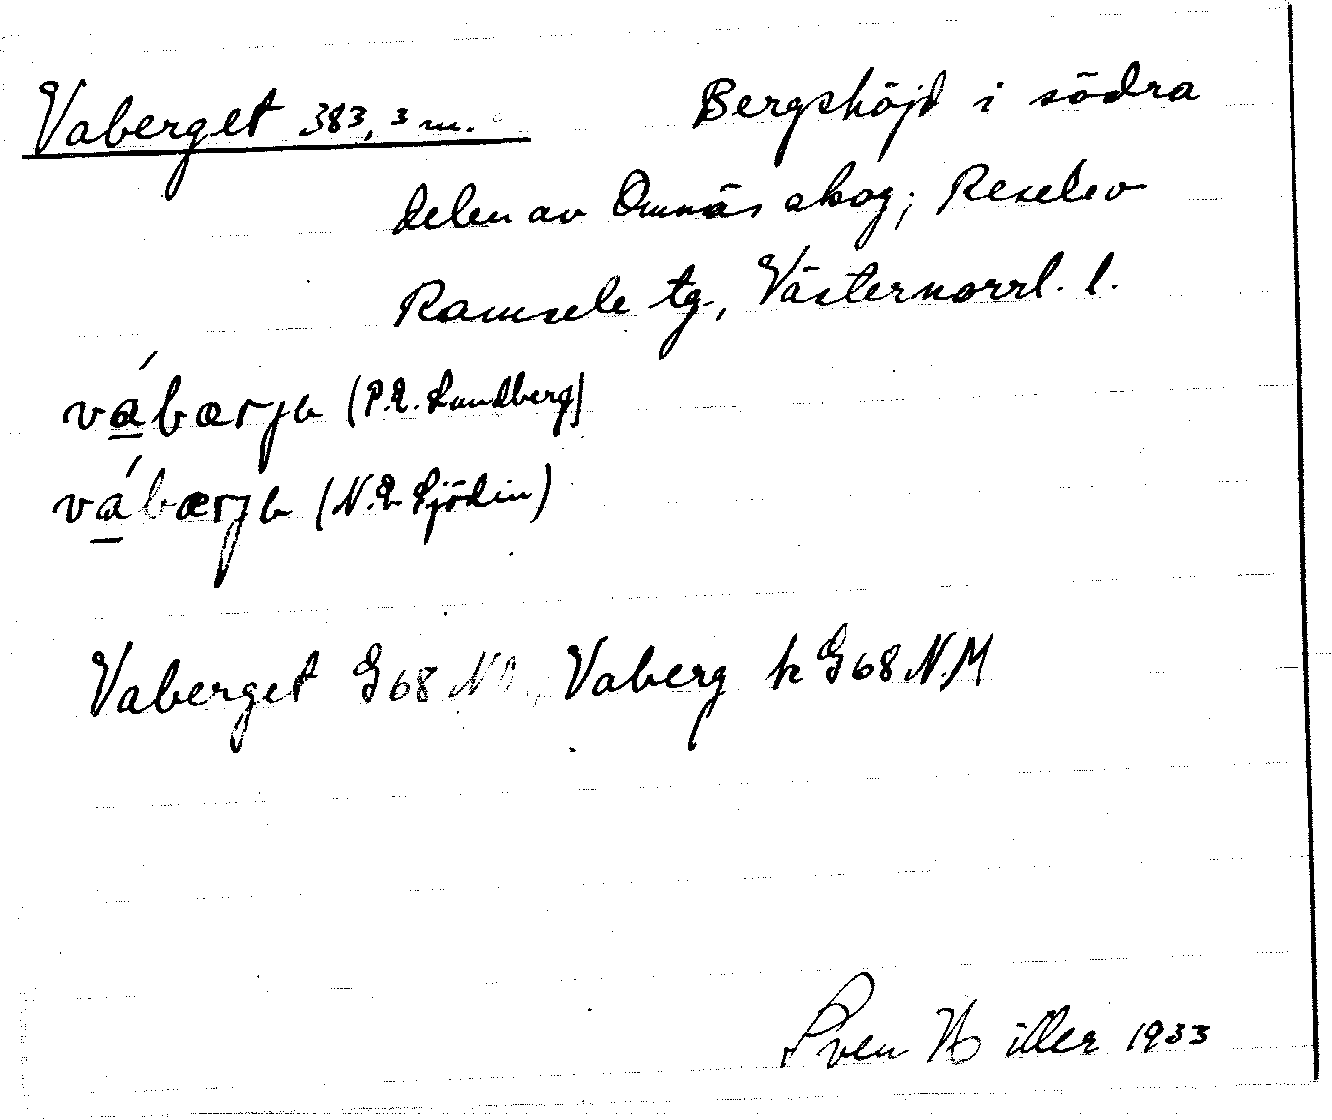 Vaberget 383,3 m. Bergshöjd i södra
delen av Omnäs skog; Resele sn
Ramsele tg., Västernorrl. l.
vá̱bærjə (P.E. Sundberg)
vá̱bærjə (N.E. Sjödin)
Vaberget G68 N Vaberg k G68 NM
Sven 1933